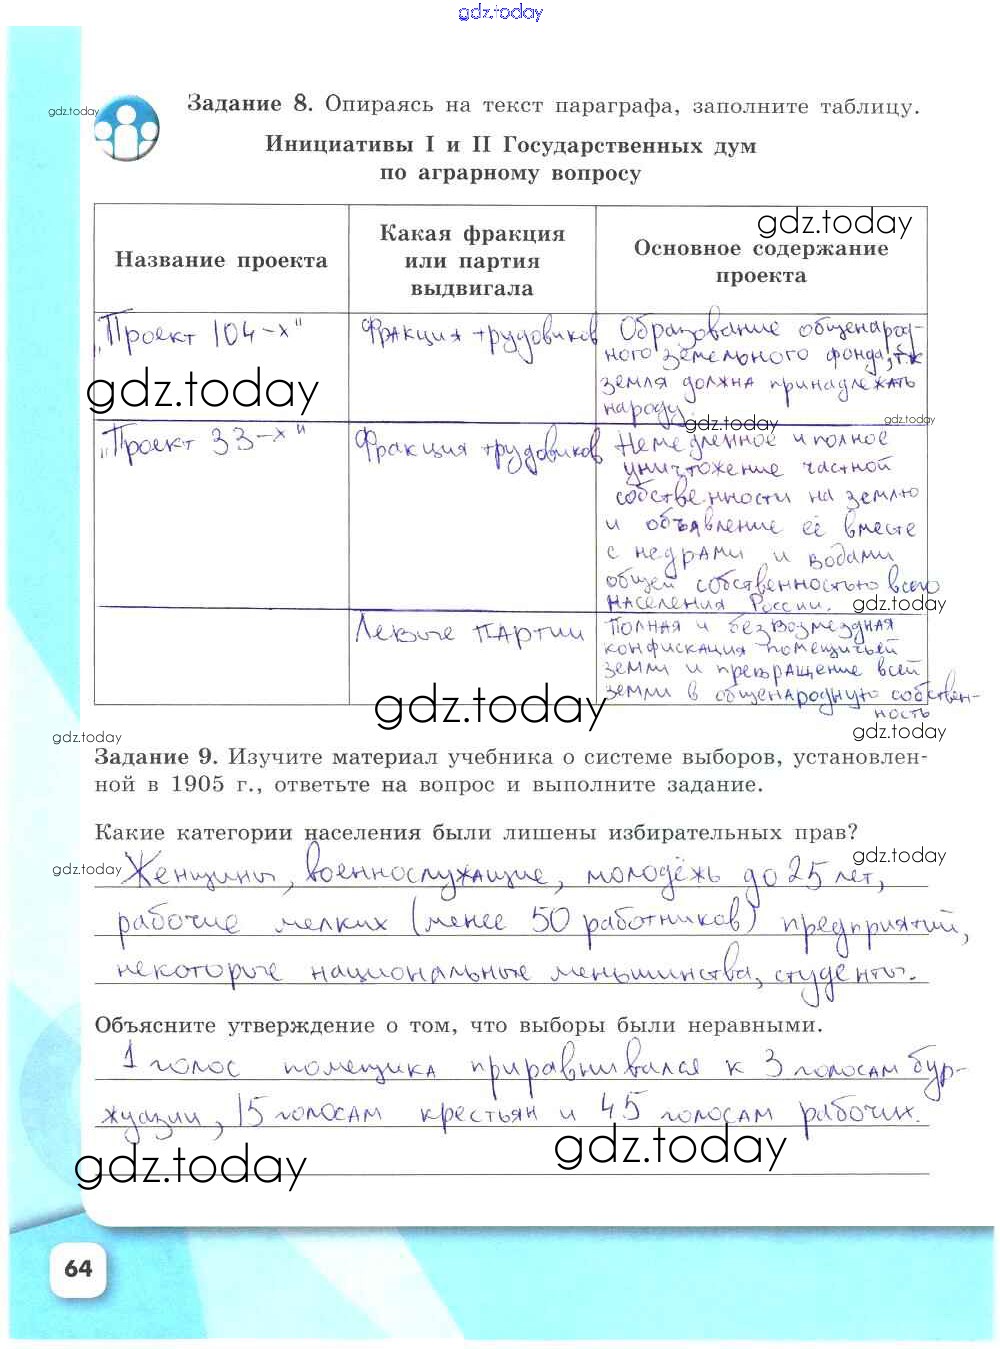 gdz.today
gdz.today
Задание 8. Опираясь на текст параграфа, заполните таблицу.
Инициативы I и II Государственных дум
по аграрному вопросу
gdz.today
Название проекта
Какая фракция
или партия
выдвигала
Основное содержание
проекта
„Проект 104-х"
Фракция трудовиков
Образование общенарод-
ного земельного фонда, т.к
земля должна принадлежать
народу.
gdz.today
gdz.today
gdz.today
„Проект 33-х"
Фракция трудовиков
Немедленное и полное
уничтожение частной
собственности на землю
и объявление её вместе
с недрами и водами
общей собственностью всего
населения России.
gdz.today
Левые партии
Полная и безвозмездная
конфискация помещичьей
земли и превращение всей
земли в общенародную собствен-
ность
gdz.today
gdz.today
gdz.today
Задание 9. Изучите материал учебника о системе выборов, установлен-
ной в 1905 г., ответьте на вопрос и выполните задание.
Какие категории населения были лишены избирательных прав?
gdz.today
gdz.today
Женщины, военнослужащие, молодёжь до 25 лет,
рабочие мелких (менее 50 работников) предприятий,
некоторые национальные меньшинства, студенты.
Объясните утверждение о том, что выборы были неравными.
1 голос помещика приравнивался к 3 голосам бур-
жуазии, 15 голосам крестьян и 45 голосам рабочих.
gdz.today
gdz.today
64